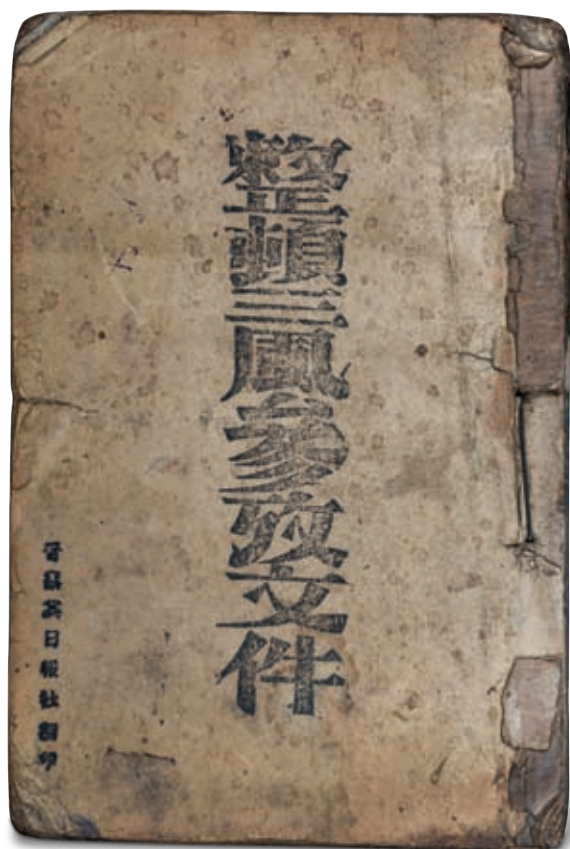 整頓三風參攷文件
晉察冀日報社翻印